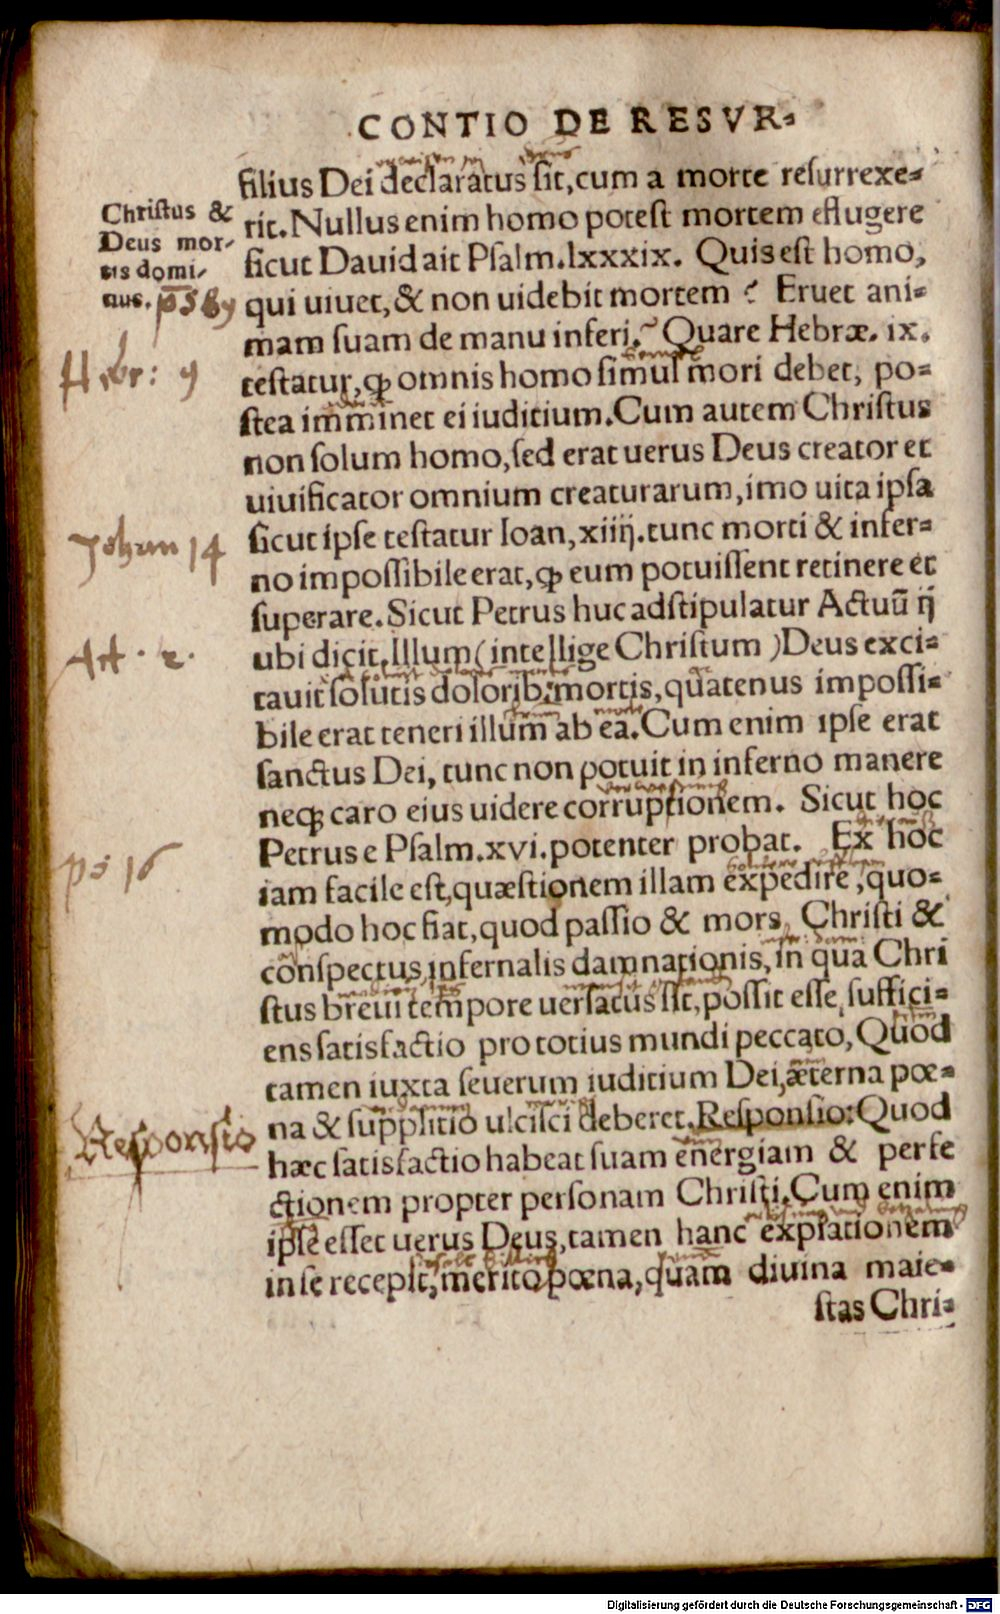 CONTIO DE RESVR-
filius Dei declaratus sit, cum a morte resurrexe-
rit. Nullus enim homo potest mortem effugere
sicut Dauid ait Psalm. lxxxix. Quis est homo,
qui uiuet, & non uidebit mortem ? Eruet ani-
mam suam de manu inferi. Quare Hebræ. ix.
testatur, ꝙ omnis homo simul mori debet, po-
stea imminet ei iuditium. Cum autem Christus
non solum homo, sed erat uerus Deus creator et
uiuificator omnium creaturarum, imo uita ipsa
sicut ipse testatur Ioan, xiiij. tunc morti & infer-
no impossibile erat, ꝙ eum potuissent retinere et
superare. Sicut Petrus huc adstipulatur Actuū ij
ubi dicit. Illum (intellige Christum) Deus exci-
tauit solutis dolorib; mortis, quatenus impossi-
bile erat teneri illum ab ea. Cum enim ipse erat
sanctus Dei, tunc non potuit in inferno manere
neqꝫ caro eius uidere corruptionem. Sicut hoc
Petrus e Psalm. xvi. potenter probat. Ex hoc
iam facile est, quæstionem illam expedire, quo-
modo hoc fiat, quod passio & mors Christi &
conspectus infernalis damnationis, in qua Chri
stus breui tempore uersatus sit, possit esse suffici-
ens satisfactio pro totius mundi peccato, Quod
tamen iuxta seuerum iuditium Dei, æterna pœ-
na & supplitio ulcisci deberet. Responsio: Quod
hæc satisfactio habeat suam energiam & perfe
ctionem propter personam Christi. Cum enim
ipse esset uerus Deus, tamen hanc expiationem
in se recepit, merito pœna, quam diuina maie-
stas Chri-
Christus &
Deus mor-
tis domi-
nus.
ps 89
Hebr: 9
Johan 14
Act. 2.
ps 16
Responsio
Digitalisierung gefördert durch die Deutsche Forschungsgemeinschaft - DFG